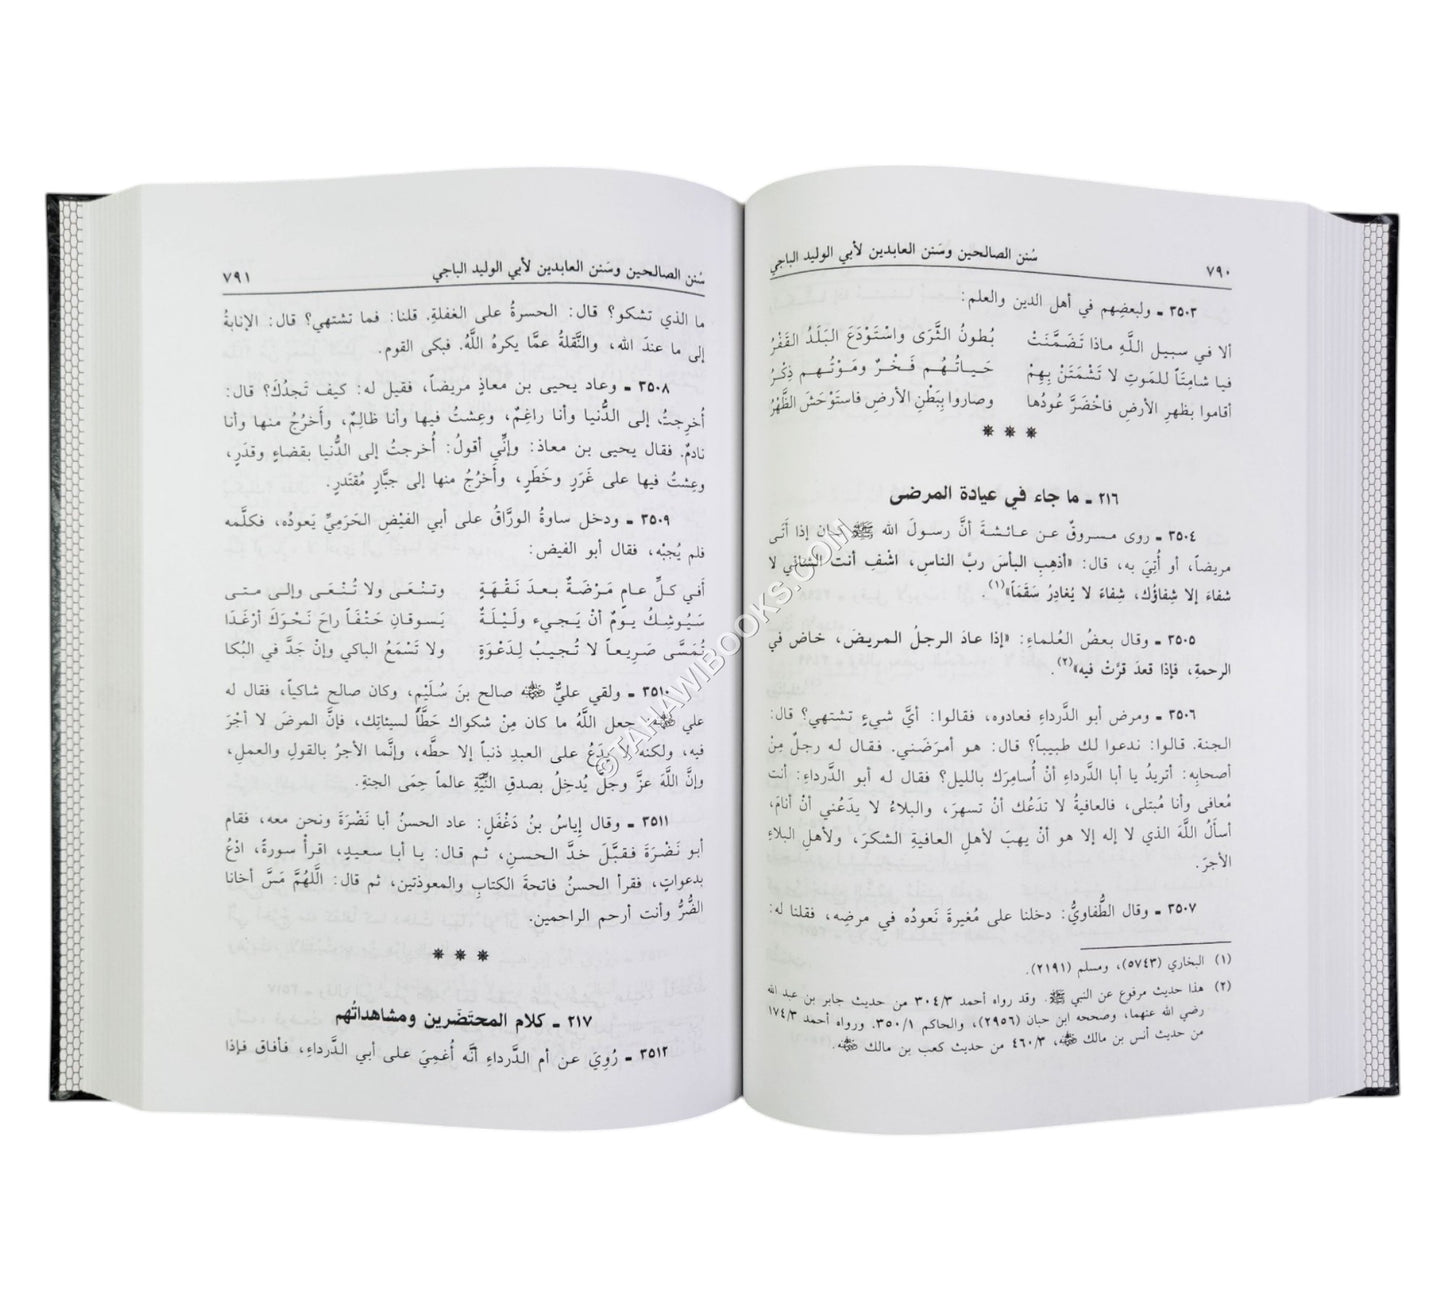 ٧٩٠
سُنن الصالحين وسَنن العابدين لأبي الوليد الباجي
٣٥٠٣ ـ ولبعضِهم في أهل الدين والعلم:
ألا في سبيل اللَّهِ ماذا تَضَمَّنَتْ بُطونُ الثَّرَى واسْتَوْدَعَ البَلَدُ القَفْرُ
فيا شامِتَاً للمَوتِ لا تَشْمَتَنْ بِهِمْ حَيـاتُـهُم فَـخْـرٌ ومَـوْتُـهـم ذِكْرُ
أقاموا بظهرِ الأرضِ فاخْضَرَّ عُودُها وصاروا بِبَطْنِ الأرضِ فاستَوْحَشَ الظَّهْرُ
* * *
٢١٦ ـ ما جاء في عيادة المرضى
٣٥٠٤ ـ روى مسروقٌ عن عائشةَ أنَّ رسولَ الله ﷺ كان إذا أَتَى
مريضاً، أو أُتِيَ به، قال: «أذهِبِ البأسَ ربَّ الناسِ، اشْفِ أنت الشافي لا
شفاءَ إلا شِفاؤُك، شِفاءً لا يُغادِرُ سَقَمَاً»(١).
٣٥٠٥ ـ وقال بعضُ العُلماءِ: «إذا عادَ الرجلُ المريضَ، خاض في
الرحمةِ، فإذا قعدَ قرَّتْ فيه»(٢).
٣٥٠٦ ـ ومرض أبو الدَّرداءِ فعادوه، فقالوا: أيَّ شيءٍ تشتهي؟ قال:
الجنة. قالوا: ندعوا لك طبيباً؟ قال: هو أمرَضَني. فقال له رجلٌ مِنْ
أصحابِه: أتريدُ يا أبا الدَّرداءِ أنْ أُسامِرَك بالليل؟ فقال له أبو الدَّرداءِ: أنت
مُعافى وأنا مُبتلى، فالعافيةُ لا تدَعُك أنْ تسهرَ، والبلاءُ لا يدَعُني أنْ أنامَ،
أسألُ اللَّهَ الذي لا إله إلا هو أنْ يهبَ لأهلِ العافيةِ الشكرَ، ولأهلِ البلاءِ
الأجرَ.
٣٥٠٧ ـ وقال الطُّفاويُّ: دخلنا على مُغيرةَ نَعودُه في مرضِه، فقلنا له:
(١) البخاري (٥٧٤٣)، ومسلم (٢١٩١).
(٢) هذا حديث مرفوع عن النبي ﷺ. وقد رواه أحمد ٣٠٤/٣ من حديث جابر بن عبد الله
رضي الله عنهما، وصححه ابن حبان (٢٩٥٦)، والحاكم ٣٥٠/١. ورواه أحمد ١٧٤/٣
من حديث أنس بن مالك رضي الله عنه، ٤٦٠/٣ من حديث كعب بن مالك رضي الله عنه.
سُنن الصالحين وسَنن العابدين لأبي الوليد الباجي
٧٩١
ما الذي تشكو؟ قال: الحسرةُ على الغفلةِ. قلنا: فما تشتهي؟ قال: الإنابةُ
إلى ما عندَ الله، والنَّقلةُ عمَّا يكرهُ اللَّهُ. فبكى القوم.
٣٥٠٨ ـ وعاد يحيى بن معاذٍ مريضاً، فقيل له: كيف تَجدُكَ؟ قال:
أُخرِجتُ إلى الدُّنيا وأنا راغِمٌ، وعِشتُ فيها وأنا ظالِمٌ، وأَخرُجُ منها وأنا
نادمٌ. فقال يحيى بن معاذ: وإنِّي أقولُ: أُخرجتُ إلى الدُّنيا بقضاءٍ وقدَرٍ،
وعِشتُ فيها على غَرَرٍ وخَطَرٍ، وأَخرُجُ منها إلى جبَّارٍ مُقتَدرٍ.
٣٥٠٩ ـ ودخل ساوةُ الورَّاقُ على أبي الفيْضِ الحَرَمِيِّ يَعودُه، فكلَّمه
فلم يُجبْه، فقال أبو الفيض:
أفي كلِّ عـامٍ مَرْضَةٌ بـعدَ نَـقْـهَةٍ وتـنْـعَى ولا تُـنْـعَـى وإلـى مـتـى
سَيُوشِكُ يـومٌ أنْ يَـجيءَ ولَيْلَةٌ يَسوقانِ حَتْفَاً راحَ نَحْوَكَ أرْغَدَا
تُمَسَّى صَرِيعاً لا تُجيبُ لِدَعْوَةٍ ولا تَسْمَعُ الباكي وإنْ جَدَّ في البُكا
٣٥١٠ ـ ولقي عليٌّ رضي الله عنه صالح بنَ سُلَيْمٍ، وكان صالح شاكياً، فقال له
علي رضي الله عنه: جعل اللَّهُ ما كان مِنْ شكواك حَطَّاً لسيئاتِك، فإنَّ المرضَ لا أجْرَ
فيه، ولكنه لا يدَعُ على العبدِ ذنباً إلا حطَّه، وإنَّما الأجرُ بالقولِ والعملِ،
وإنَّ اللَّهَ عزَّ وجلَّ يُدخِلُ بصدقِ النِّيَّةِ عالماً حِمَى الجنةِ.
٣٥١١ ـ وقال إياسُ بنُ دَغْفَلٍ: عاد الحسنُ أبا نَضْرَةَ ونحن معه، فقام
أبو نَضْرَةَ فقبَّلَ خدَّ الحسنِ، ثم قال: يا أبا سعيدٍ، اقرأْ سورةً، ادْعُ
بدعواتٍ، فقرأ الحسنُ فاتحةَ الكتابِ والمعوذتين، ثم قال: اللَّهُمَّ مَسَّ أخانا
الضُّرُّ وأنت أرحم الراحمين.
* * *
٢١٧ ـ كلام المحتضَرين ومشاهداتُهم
٣٥١٢ ـ رُوِيَ عن أم الدَّرداءِ أنَّه أُغمِيَ على أبي الدَّرداءِ، فأفاق فإذا
©TAHAWIBOOKS.COM